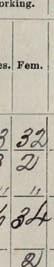 orking.
es. Fem.
3 32
3 2
" "
34
2